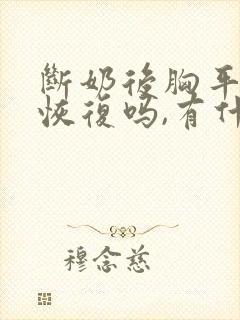 斷奶後胸平
恢復吗,有什
穆念慈